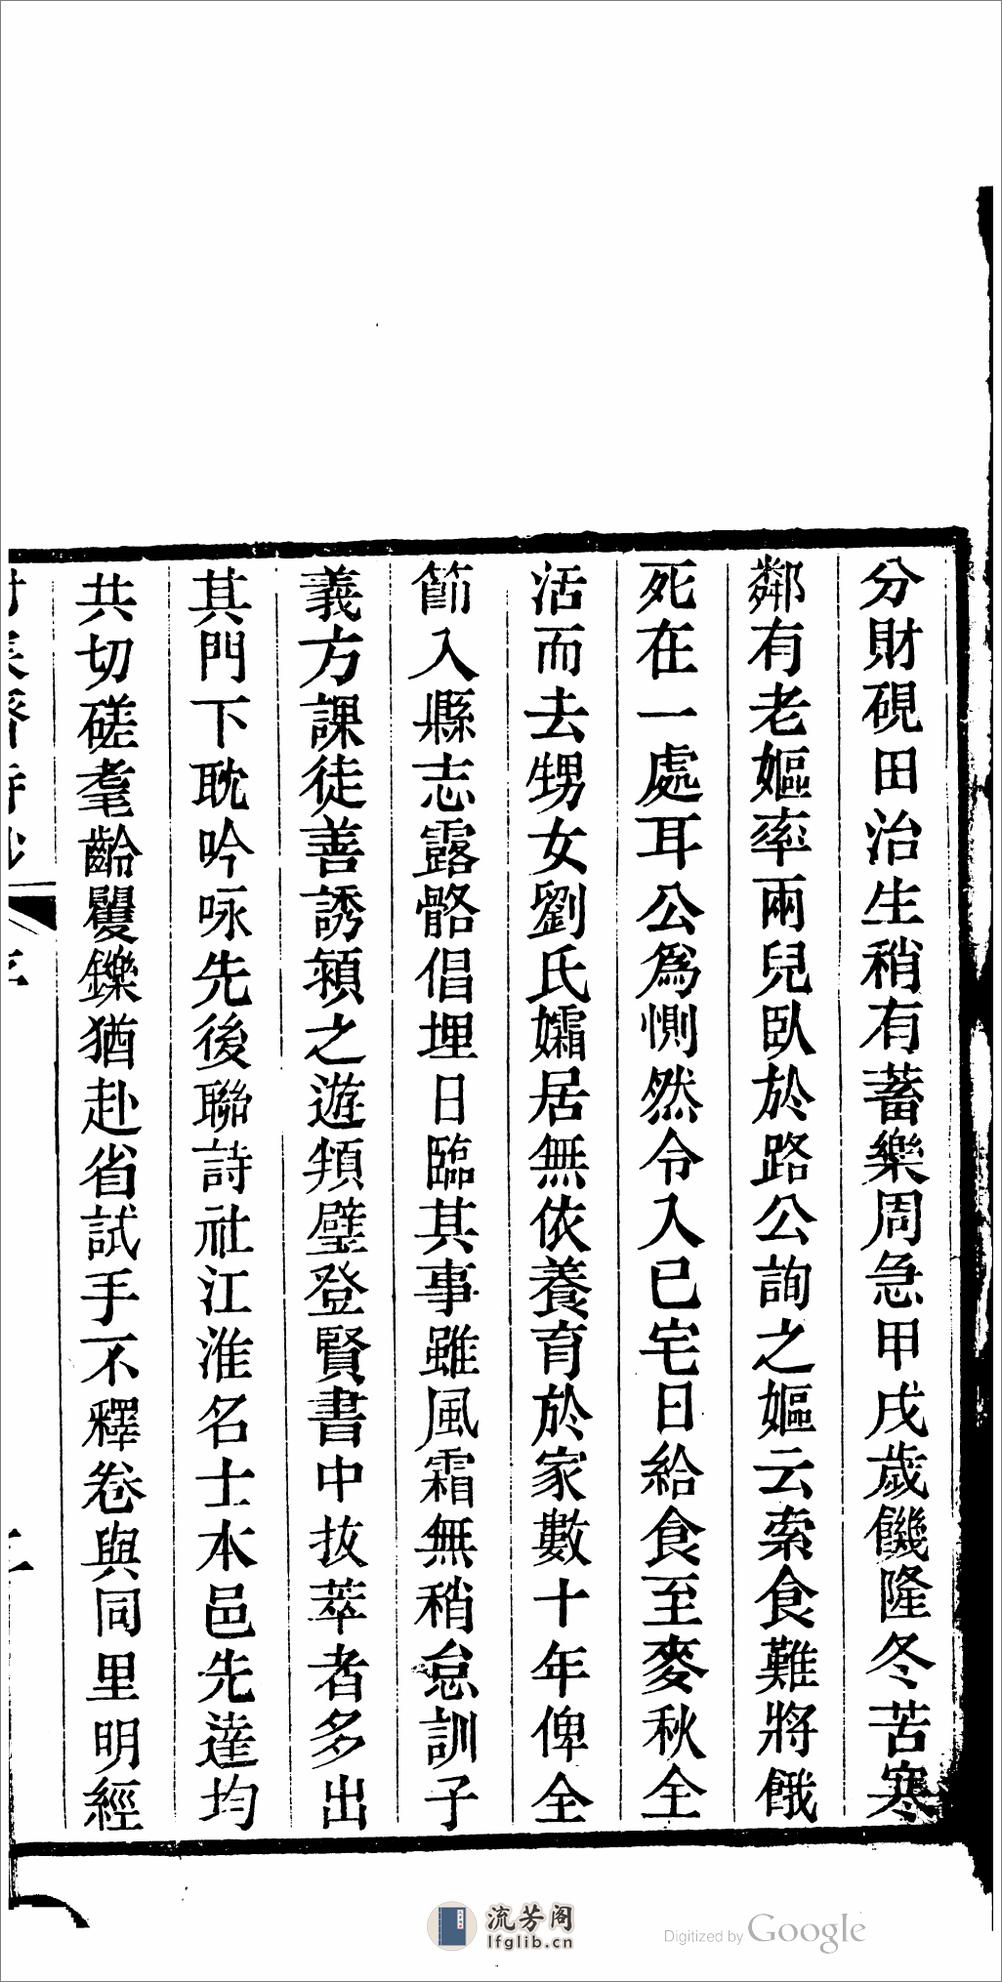 分財硯田治生稍有蓄樂周急甲戌歲饑隆冬苦寒
鄰有老嫗率兩兒臥於路公詢之嫗云索食難將餓
死在一處耳公為惻然令入已宅日給食至麥秋全
活而去甥女劉氏孀居無依養育於家數十年俾全
節入縣志露骼倡埋日臨其事雖風霜無稍怠訓子
義方課徒善誘潁之遊頖璧登賢書中抜萃者多出
其門下耽吟咏先後聯詩社江淮名士本邑先達均
共切磋耄齡矍鑠猶赴省試手不釋卷與同里明經
流芳阁
lfglib.cn
Digitized by Google